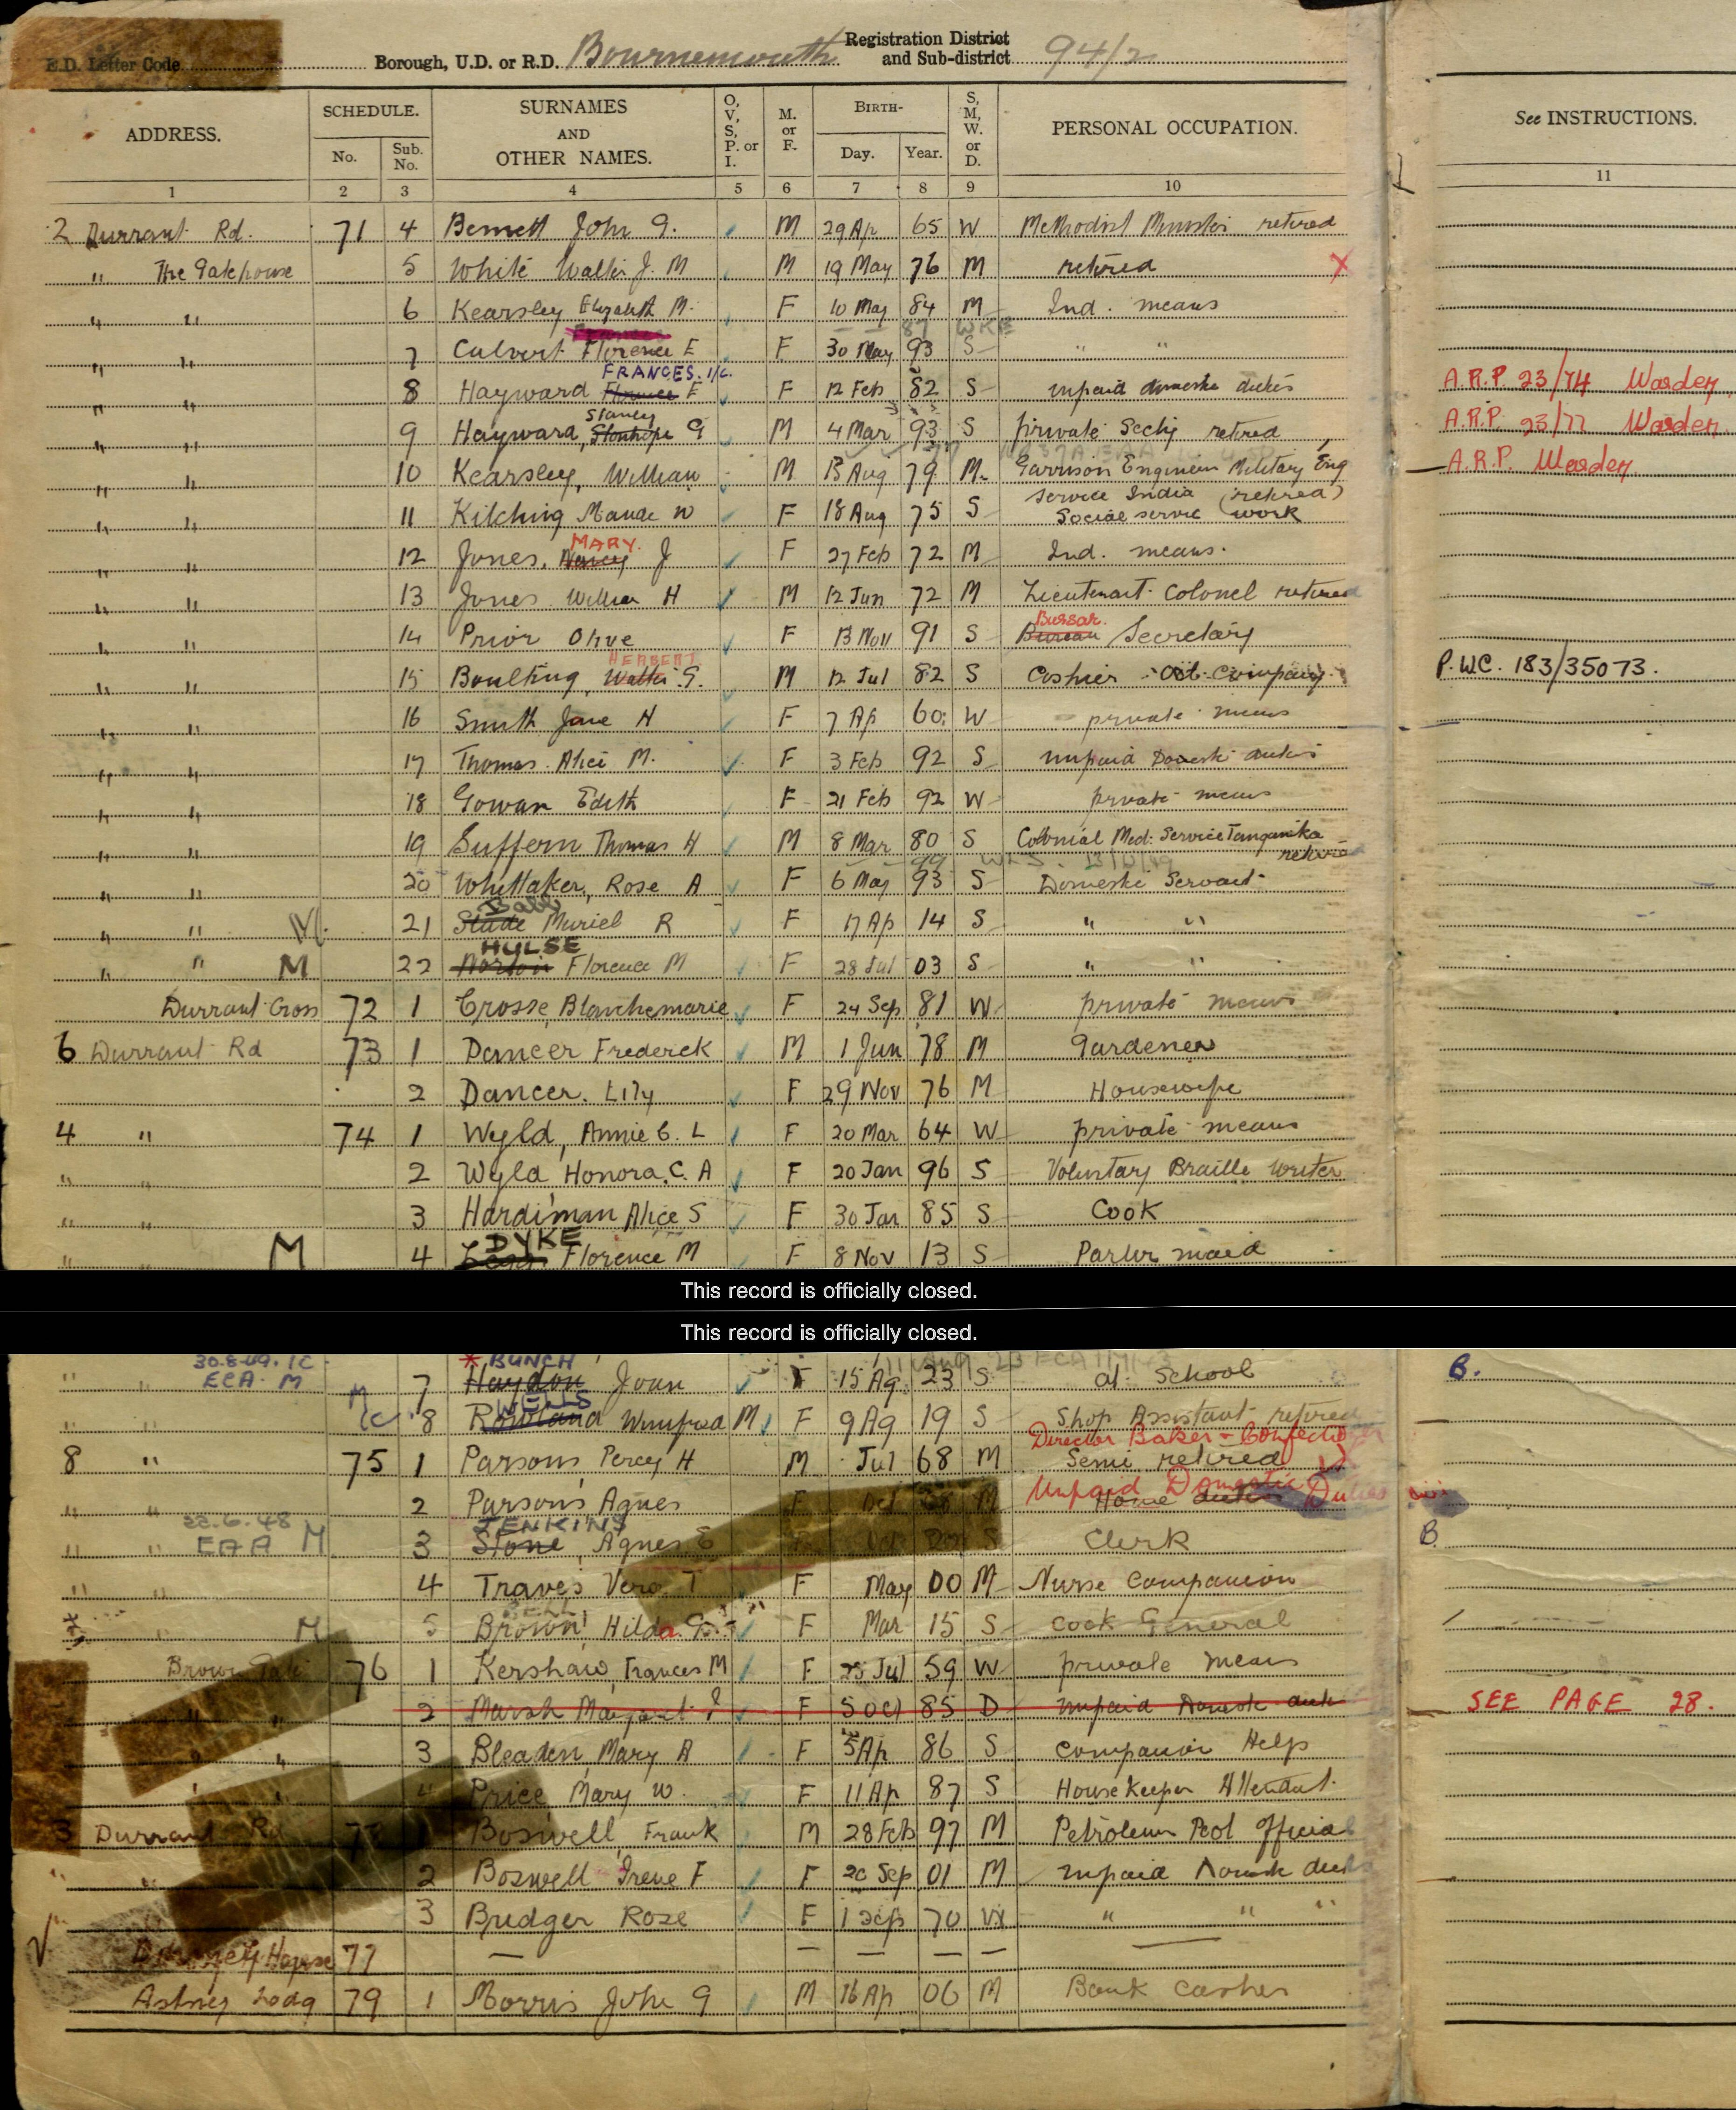 E.D. Letter Code
Borough, U.D. or R.D. Bournemouth Registration District and Sub-district 94/2
ADDRESS. SCHEDULE. No. Sub. No. SURNAMES AND OTHER NAMES. O, V, S, P. or I. M. or F. BIRTH- Day. Year. S, M, W. or D. PERSONAL OCCUPATION. See INSTRUCTIONS.
1 2 3 4 5 6 7 8 9 10 11
2 Durrant Rd. 71 4 Bennett John G. M 29 Ap 65 W Methodist Minister retired
" The Gatehouse 5 White Walter J. M M 19 May 76 M retired X
" " 6 Kearsley Elizabeth M. F 10 May 84 M Ind. means
" " 7 Calvert Florence E F 30 May 93 S " "
FRANCES. I/C.
" " 8 Hayward Florence E F 12 Feb 82 S unpaid domestic duties A.R.P. 23/74 Warden
Stanley
" " 9 Hayward, Stanhope G M 4 Mar 93 S private Secty retired A.R.P. 23/77 Warden
" " 10 Kearsley, William M 13 Aug 79 M Garrison Engineer Military Eng A.R.P. Warden
Service India (retired)
" " 11 Kitching Maude W F 18 Aug 75 S Social service work
MARY.
" " 12 Jones, Nancy J F 27 Feb 72 M Ind. means.
" " 13 Jones William H M 12 Jun 72 M Lieutenant Colonel retired
Bursar.
" " 14 Prior Olive F 13 Nov 91 S Bureau Secretary
HERBERT
" " 15 Boulting, Walter G. M 12 Jul 82 S Cashier Oil Company P.W.C. 183/35073.
" " 16 Smith Jane H F 7 Ap 60 W private means
" " 17 Thomas Alice M. F 3 Feb 92 S unpaid Domestic duties
" " 18 Gowan Edith F 21 Feb 92 W private means
" " 19 Suffern Thomas H M 8 Mar 80 S Colonial Med: Service Tanganika
retired
" " 20 Whittaker, Rose A F 6 May 93 S Domestic Servant
" " 21 Slade Muriel R F 17 Ap 14 S " "
HULSE
" " M 22 Norton Florence M F 28 Jul 03 S " "
Durrant Cross 72 1 Crosse, Blanchemarie F 24 Sep 81 W private means
6 Durrant Rd 73 1 Dancer Frederick M 1 Jun 78 M Gardener
2 Dancer. Lily F 29 Nov 76 M Housewife
4 " 74 1 Wyld, Annie E. L F 20 Mar 64 W private means
" " 2 Wyld, Honora. C. A F 20 Jan 96 S Voluntary Braille Writer
" " 3 Hardiman Alice S F 30 Jan 85 S Cook
DYKE
" " M 4 Legg Florence M F 8 Nov 13 S Parlur maid
This record is officially closed.
This record is officially closed.
30.8.49. IC * BUNCH
" " ECA. M 7 Haydon Joan F 15 Ag 23 S at School B.
WELLS
" " 8 Rowland Winifred M F 9 Ag 19 S Shop Assistant retired
Director Baker + Confectio
8 " 75 1 Parsons, Percy H M Jul 68 M Semi retired
Unpaid Domestic Duties
" " 2 Parsons, Agnes F Oct M Home duties
22.6.48 JENKINS
" " EAA M 3 Stone, Agnes E S Clerk B
" " 4 Traves Vera T F May 00 M Nurse Companion
M 5 Brown Hilda G F Mar 15 S Cook General
76 1 Kershaw, Frances M F 25 Jul 59 W private means
2 Marsh Margaret F 5 Oct 85 D unpaid domestic duties SEE PAGE 28.
3 Bleaden, Mary A F 5 Ap 86 S Companion Help
4 Price, Mary W. F 11 Ap 87 S HouseKeeper Attendant.
3 Durrant Rd 77 Boswell Frank M 28 Feb 97 M Petroleum Pool Official
" " 2 Boswell Irene F F 20 Sep 01 M unpaid Domestic duties
3 Bridger Rose F 1 Sep 70 W " " "
House 77 — — — — — —
Astney Lodg 79 1 Morris John G M 16 Ap 06 M Bank Cashier